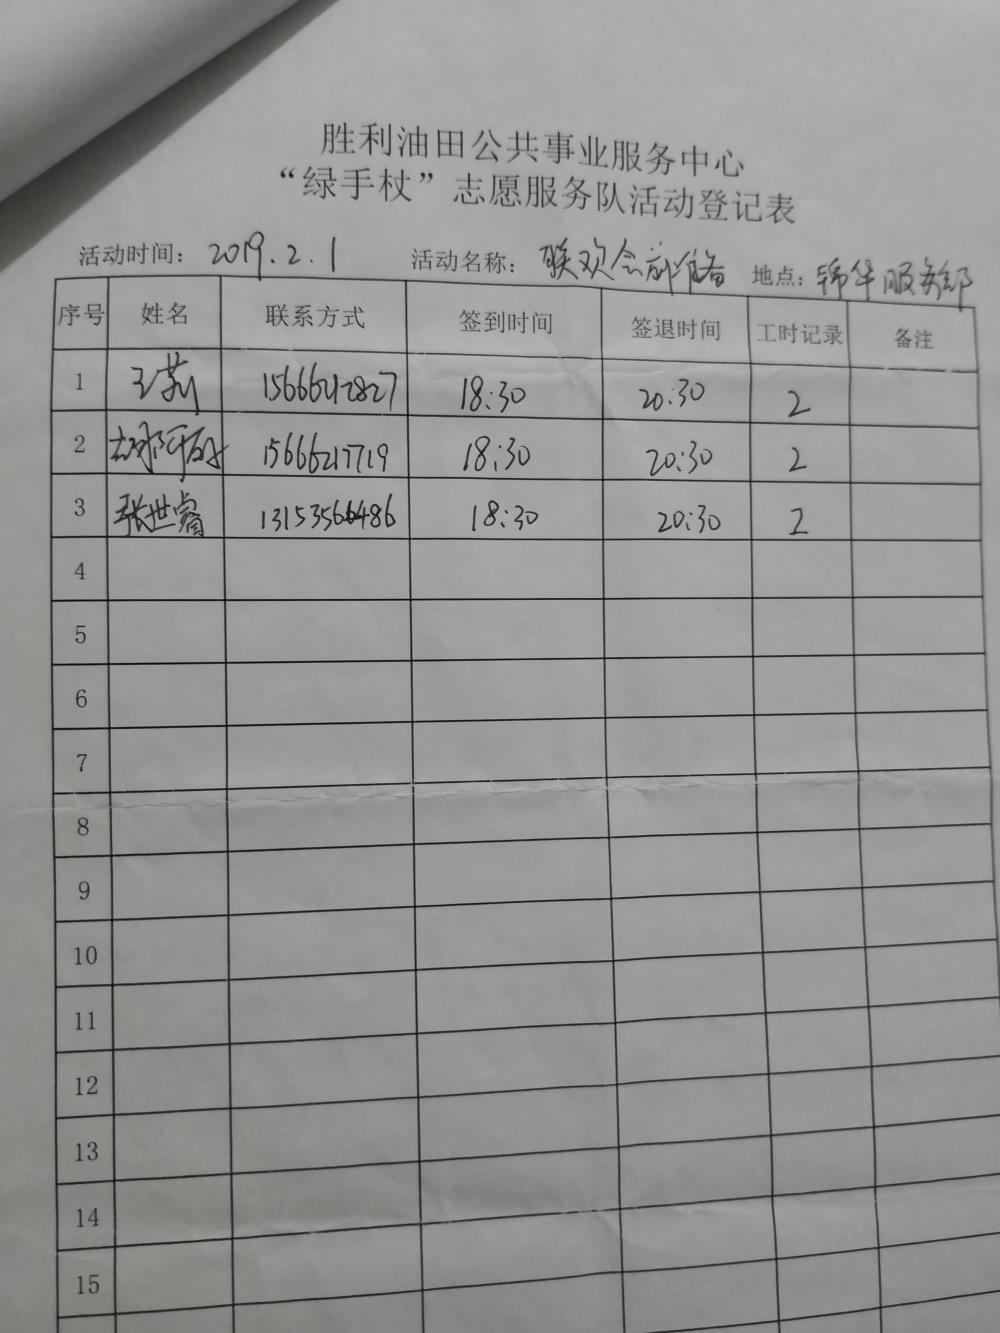 胜利油田公共事业服务中心
“绿手杖”志愿服务队活动登记表
活动时间：2019.2.1 活动名称：联欢会前准备 地点：锦华服务部
序号 姓名 联系方式 签到时间 签退时间 工时记录 备注
1 王莉 15666212827 18:30 20:30 2
2 15666217719 18:30 20:30 2
3 张世睿 13153566486 18:30 20:30 2
4
5
6
7
8
9
10
11
12
13
14
15